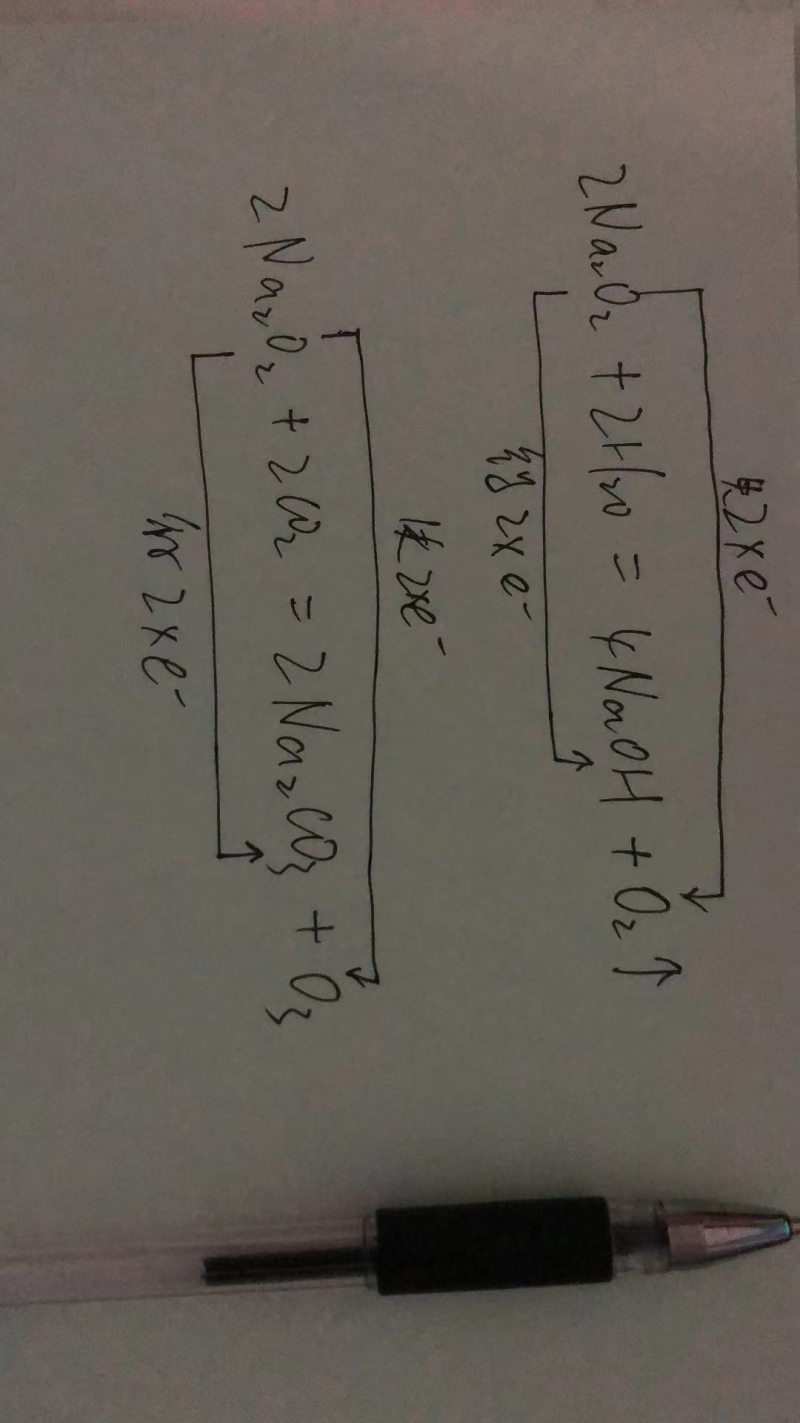 失2×e⁻
2Na₂O₂ + 2H₂O = 4NaOH + O₂↑
得2×e⁻
失2×e⁻
2Na₂O₂ + 2CO₂ = 2Na₂CO₃ + O₃
得2×e⁻